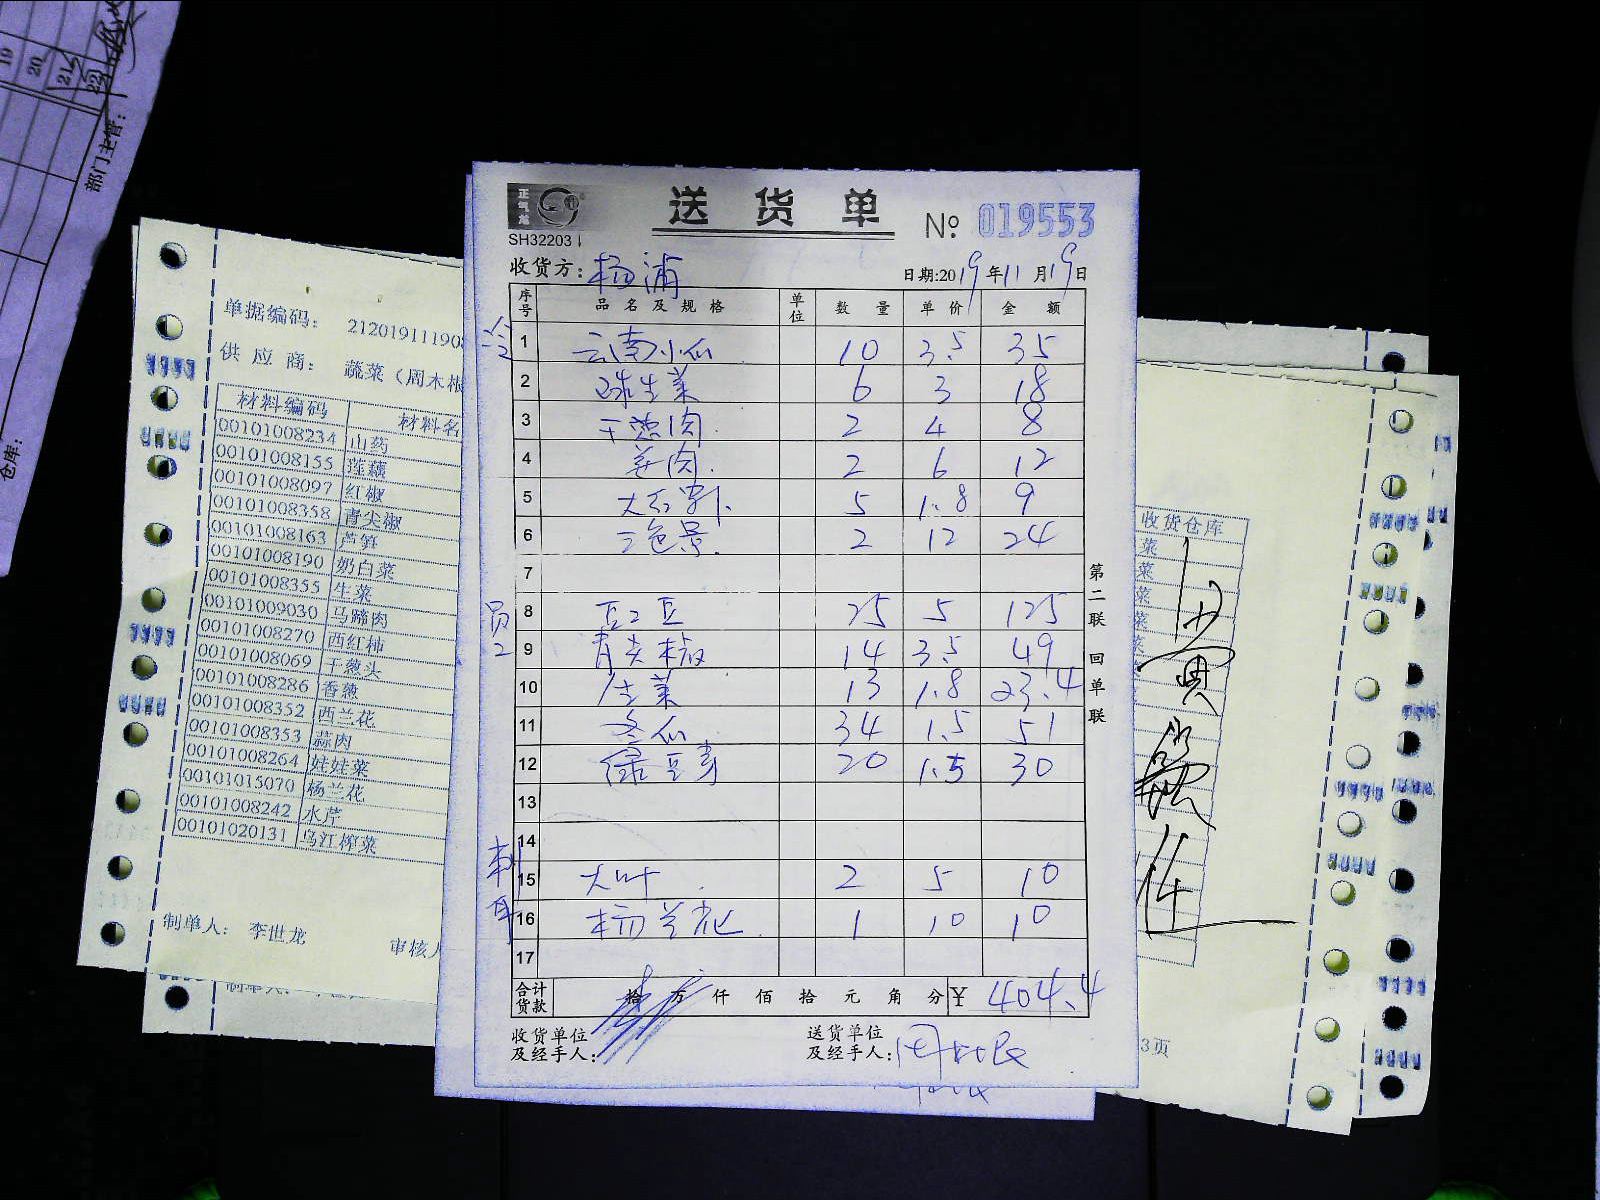 19
20
21
22
部门主管:
仓库:
单据编码: 2120191119
供应商: 蔬菜(周木根
材料编码 材料名
00101008234 山药
00101008155 莲藕
00101008097 红椒
00101008358 青尖椒
00101008163 芦笋
00101008190 奶白菜
00101008355 生菜
00101009030 马蹄肉
00101008270 西红柿
00101008069 干葱头
00101008286 香葱
00101008352 西兰花
00101008353 蒜肉
00101008264 娃娃菜
00101015070 杨兰花
00101008242 水芹
00101020131 乌江榨菜
制单人: 李世龙
审核人
正气龙
SH32203
送货单
№ 019553
收货方: 杨浦
日期:2019年11月19日
序号 品名及规格 单位 数量 单价 金额
1 云南小瓜 10 3.5 35
2 球生菜 6 3 18
3 干葱肉 2 4 8
4 姜肉 2 6 12
5 5 1.8 9
6 三色景 2 12 24
7
8 豆豆 25 5 125
9 青尖椒 14 3.5 49
10 生菜 13 1.8 23.4
11 冬瓜 34 1.5 51
12 绿豆芽 20 1.5 30
13
14
15 大叶 2 5 10
16 杨兰花 1 10 10
17
合计货款 拾万仟佰拾元角分 ¥ 404.4
收货单位及经手人:
送货单位及经手人:
第二联 回单联
收货仓库
菜
菜
菜
菜
3页